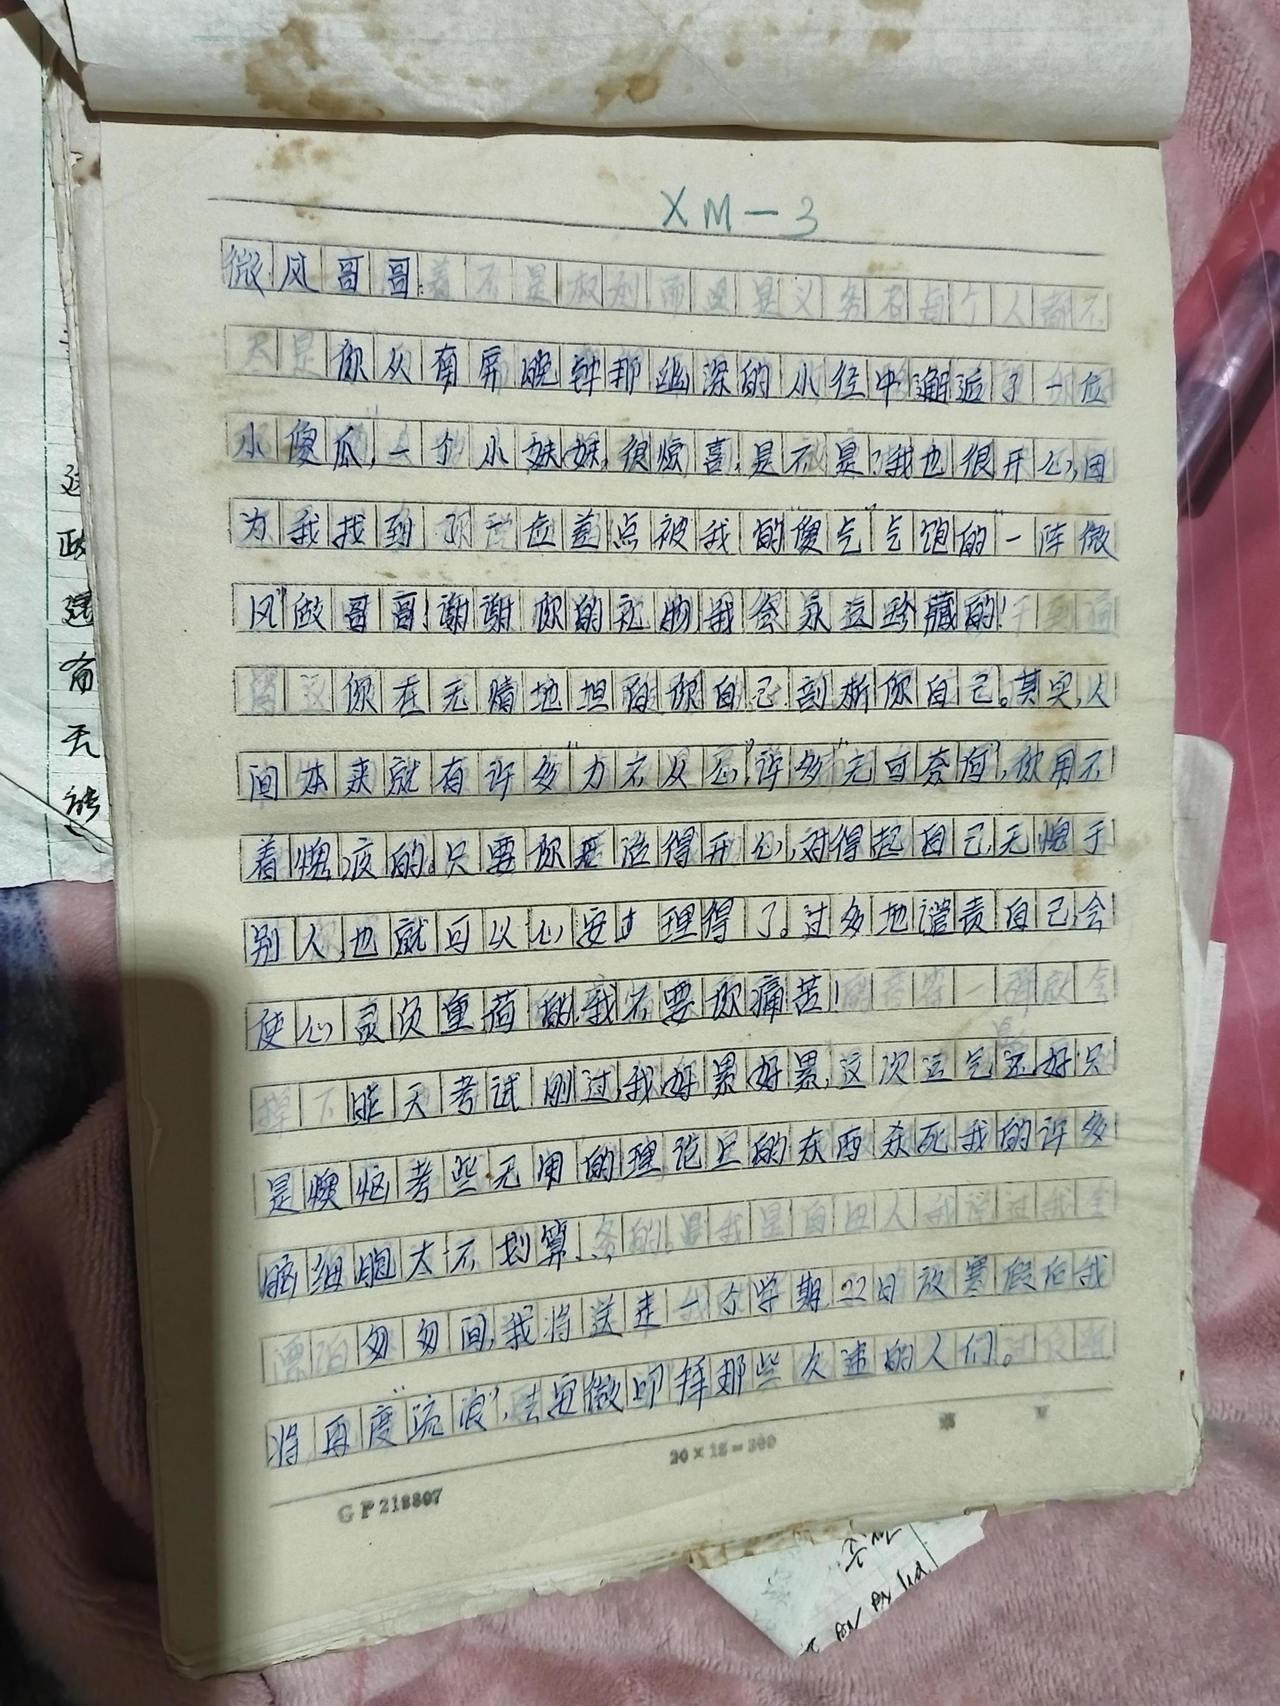 XM-3
微风哥哥:
你从南屏晚钟那幽深的小径中邂逅了一位
小傻瓜",一个小妹妹,很惊喜,是不是?我也很开心,因
为我找到了一位差点被我的"傻气"气饱的"一阵微
风"做哥哥!谢谢你的礼物我会永远珍藏的!
你在无情地坦白你自己剖析你自己。其实,人
间本来就有许多"力不从心"许多"无可奈何",你用不
着愧疚的。只要你活得开心,对得起自己,无愧于
别人,也就可以心安理得了。过多地谴责自己会
使心灵负重荷的,我不要你痛苦!
昨天考试刚过,我好累好累,这次运气还好只
是懊恼考些无用的理论上的东西杀死我的许多
脑细胞太不划算.
匆匆间,我将送走一个学期.22日放寒假后我
将再度"流浪",去安徽叩拜那些久违的人们。
20×15=300
GP218807